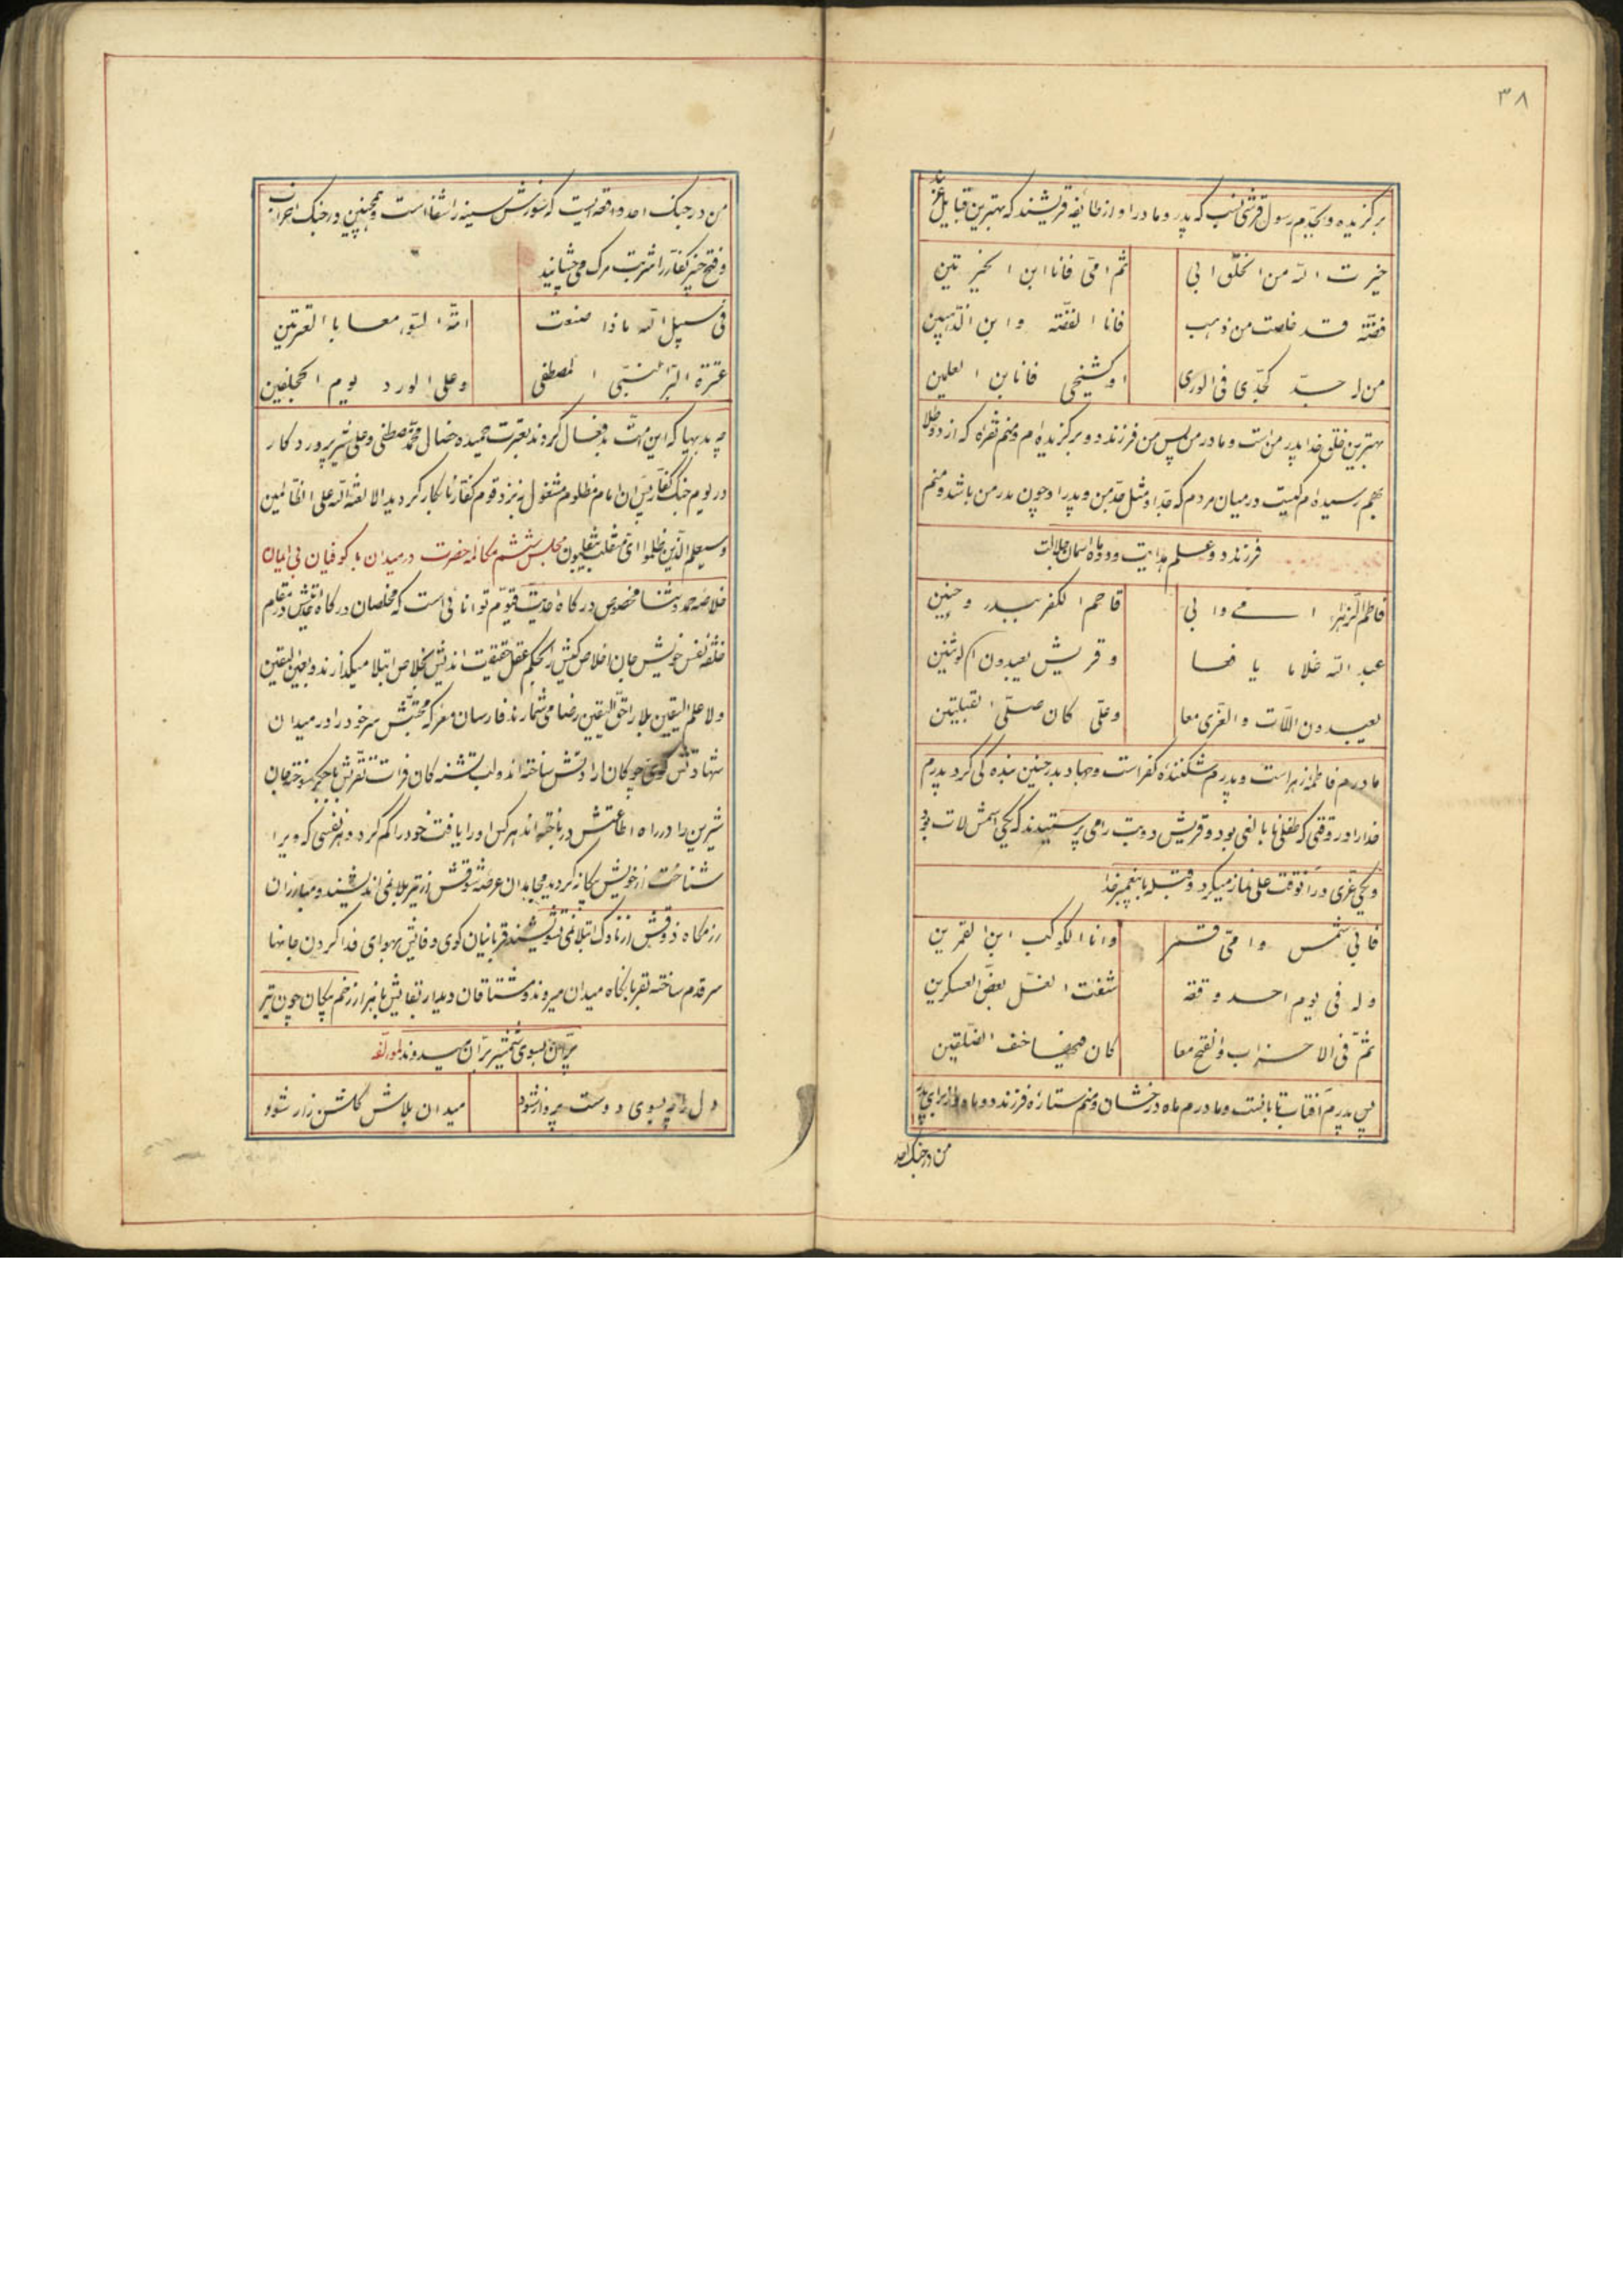 ۳۸
برکزیده و بجدّم رسول قرشی نسب که پدر و مادر او از طایفه قریشند که بهترین قبایل
خیرت اللّه من الخلق ابی ثم امّی فانا ابن الخیرتین
فضّته قد خلصت من ذهب فانا الفضّته و ابن الذّهبین
من له جدّ کجدّی فی الوری او کشیخی فانا ابن العلمین
بهترین خلق خدا پدر من است و مادر من پس من فرزند دو برکزیده‌ام و منم نقره که از دو طلا
بهم رسیده‌ام کیست در میان مردم که جدّ او مثل جدّ من و پدر او چون پدر من باشد و منم
فرزند دو علم هدایت و دو ماه آسمان جلالت
فاطم الزّهرا امی و ابی قاصم الکفر ببدر و حنین
عبد اللّه غلاما یافعا و قریش یعبدون الوثنین
یعبدون اللّات و العزّی معا و علّی کان صلّی القبلتین
مادرم فاطمه زهراست و پدرم شکننده کفر است و جهاد بدر و حنین بنده کی کرد پدرم
خدا را در وقتی که طفلی نا بالغی بود و قریش دو بت را می پرستیدند که یکی اسمش لات بود
و یکی عزّی در آنوقت علی نماز میکرد دو قبله با پیغمبر خدا
فابی شمس و امّی قمر و انا الکوکب ابن القمرین
و له فی یوم احد وقعه شفت الغل بعضّ العسکرین
ثمّ فی الاحزاب و الفتح معا کان فیها حتف الفیلقین
پس پدرم آفتاب تابانست و مادرم ماه درخشان و منم ستاره فرزند دو ماه و از برای پدر
من در جنک احد
من در جنک احد واقعه ایست که سوزش سینه را شفا است و همچنین در جنک احزاب
و فتح خیبر کفار را شربت مرک می چشانید
فی سبیل اللّه ماذا صنعت امّة السّوء معا بالعترتین
عترة البرّ النّبّی المصطفی و علی الورد یوم الجحفلین
چه بدیها که این امّت بد فعال کردند بعترت حمیده خصال محمّد مصطفی و علی شیر پرورد کار
در یوم جنک کفار پس آن امام مظلوم مشغول به نبرد قوم کفار نابکار کردید الا لعنة اللّه علی الظّالمین
و سیعلم الّذین ظلموا ای منقلب ینقلبون مجلس ششم مکالمه حضرت در میدان با کوفیان بی ایمان
خلاصه حمد و ثنا مخصوص درکاه احدیّت قیّوم توانائی است که مخلصان درکاه
نفس خویش جان اخلاص کیش را بحکم عقل حقیقت اندیش بخلاص ابتلا میکذارند و بعین الیقین
و لا علم الیقین بلا را حقّ الیقین رضا می شمارند فارسان معرکه محبّتش سر خود را در میدان
شهادتش کوی چوکان ارادتش ساخته‌اند و لب تشنه کان فرات تقرّبش با جکر سوخته جان
شیرین را در راه اطاعتش در باخته‌اند هر کس او را یافت خود را کم کرد و هر نفسی که ویرا
شناخت از خویش بیکانه کردید مجاهدان عرصه شوقش از تیر بلا نمی اندیشند و مبارزان
رزمکاه ذوقش از ناوک ابتلا نمی پوشند قربانیان کوی وفایش بهوای فدا کردن جانها
سر قدم ساخته بقربانکاه میدان میروند و مشتاقان دیدار بقایش با هزار زخم پیکان چون تیر
پرّان بسوی شمشیر برّان میدوند لمؤلّفه
دل را که بسوی دوست پرواز شود میدان بلاش کلشن زار شود